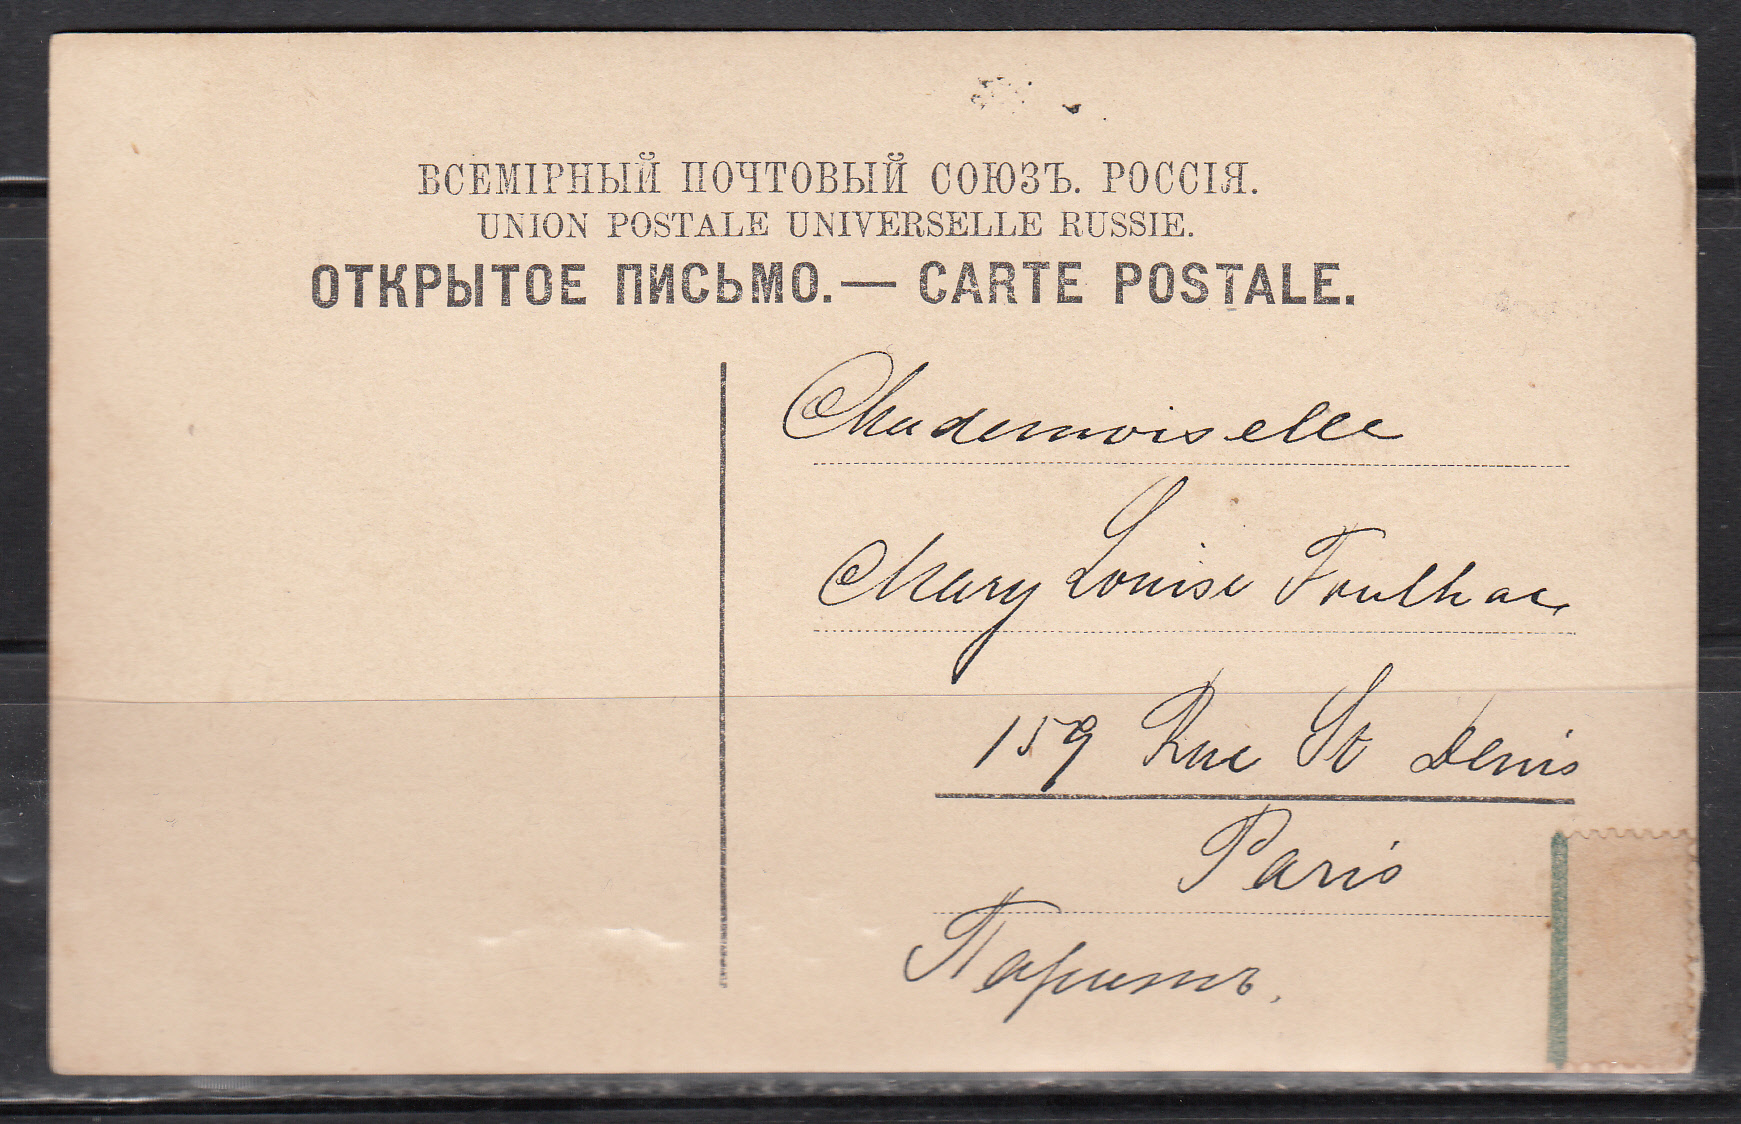 ВСЕМІРНЫЙ ПОЧТОВЫЙ СОЮЗЪ. РОССІЯ.
UNION POSTALE UNIVERSELLE RUSSIE.
ОТКРЫТОЕ ПИСЬМО.— CARTE POSTALE.
Mademoiselle
Mary Louise Foulhac
159 Rue St Denis
Paris
Парижъ.